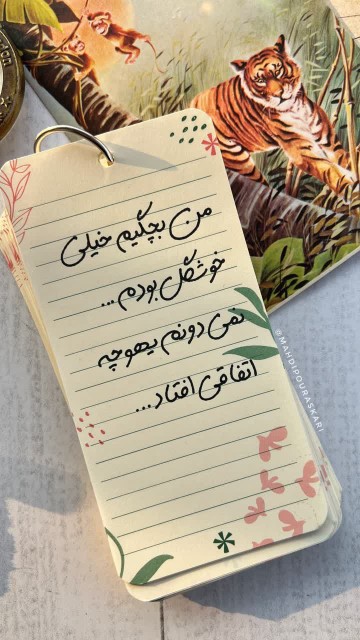 من بچگیم خیلی
خوشگل بودم...
نمی دونم یهو چه
اتفاقی افتاد...
@MAHDIPOURASKARI